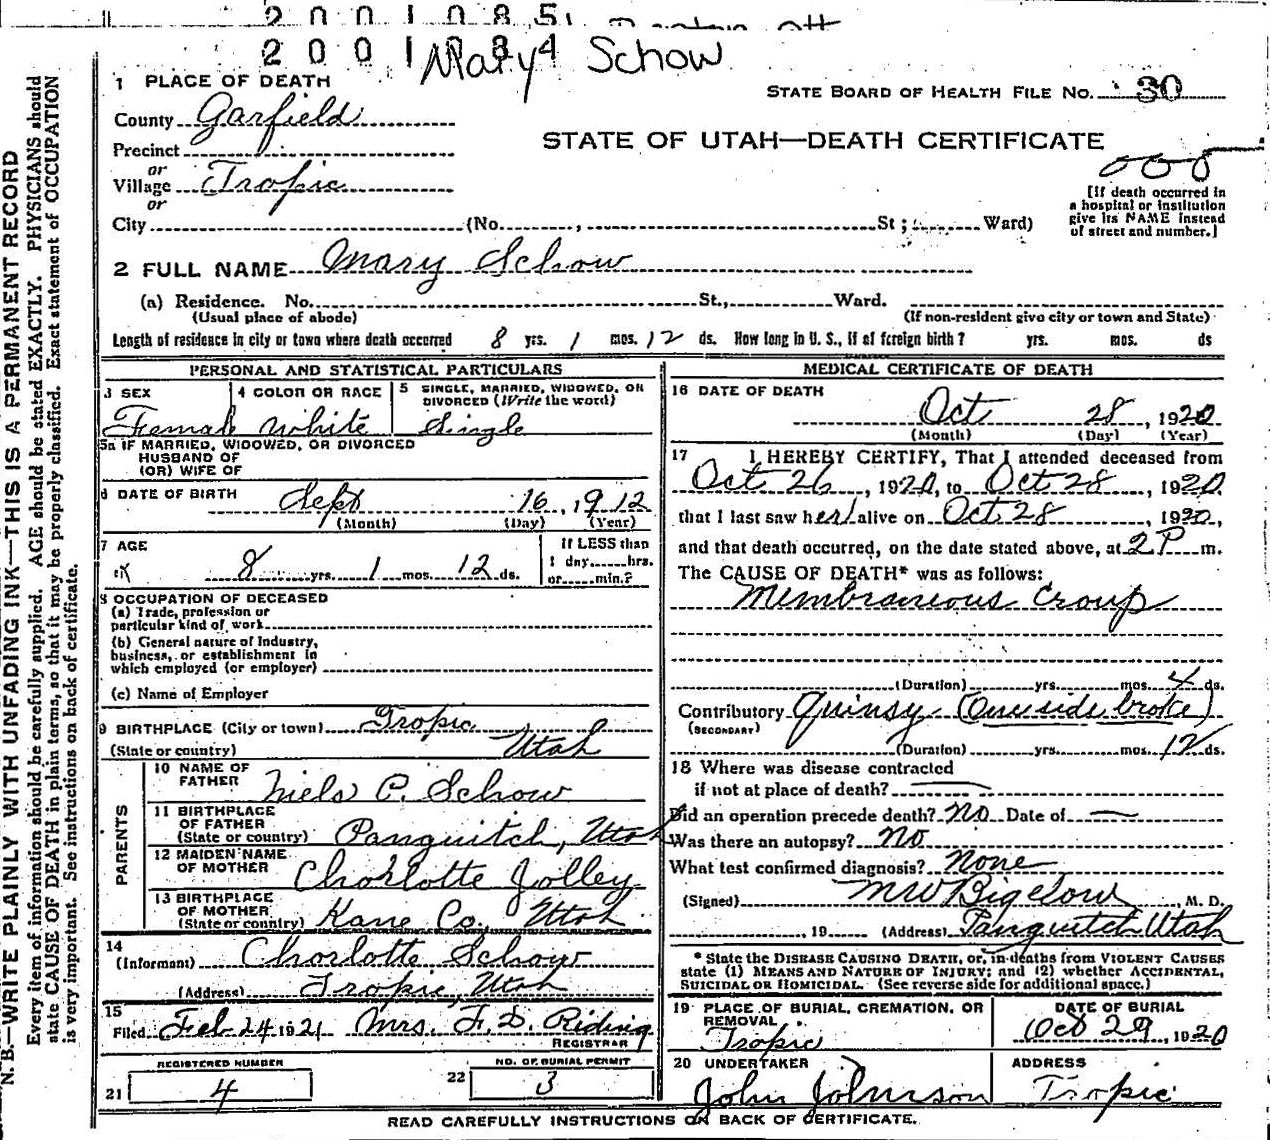 2001085
2001084
Mary Schow
1 PLACE OF DEATH
STATE BOARD OF HEALTH FILE No. 30
County Garfield
STATE OF UTAH—DEATH CERTIFICATE
Precinct
or
Village Tropic
or
[If death occurred in
a hospital or institution
give its NAME instead
of street and number.]
City (No. , St ; Ward)
2 FULL NAME Mary Schow
(a) Residence. No. St., Ward.
(Usual place of abode) (If non-resident give city or town and State)
Length of residence in city or town where death occurred 8 yrs. 1 mos. 12 ds. How long in U. S., if of foreign birth? yrs. mos. ds
PERSONAL AND STATISTICAL PARTICULARS
3 SEX 4 COLOR OR RACE 5 SINGLE, MARRIED, WIDOWED, OR
DIVORCED (Write the word)
Female White Single
5a IF MARRIED, WIDOWED, OR DIVORCED
HUSBAND OF
(OR) WIFE OF
6 DATE OF BIRTH Sept 16, 1912
(Month) (Day) (Year)
7 AGE If LESS than
8 yrs. 1 mos. 12 ds. 1 day hrs.
or min.?
8 OCCUPATION OF DECEASED
(a) Trade, profession or
particular kind of work
(b) General nature of Industry,
business, or establishment in
which employed (or employer)
(c) Name of Employer
9 BIRTHPLACE (City or town) Tropic
(State or country) Utah
PARENTS
10 NAME OF
FATHER Niels P. Schow
11 BIRTHPLACE
OF FATHER
(State or country) Panguitch, Utah
12 MAIDEN NAME
OF MOTHER Chorlotte Jolley
13 BIRTHPLACE
OF MOTHER
(State or country) Kane Co. Utah
14
(Informant) Chorlotte Schow
(Address) Tropic, Utah
15
Filed Feb 24 1921 Mrs. F. D. Riding
REGISTRAR
REGISTERED NUMBER NO. OF BURIAL PERMIT
21 4 22 3
MEDICAL CERTIFICATE OF DEATH
16 DATE OF DEATH
Oct 28, 1920
(Month) (Day) (Year)
17 I HEREBY CERTIFY, That I attended deceased from
Oct 26, 1920, to Oct 28, 1920,
that I last saw her alive on Oct 28, 1920,
and that death occurred, on the date stated above, at 2 P m.
The CAUSE OF DEATH* was as follows:
Membraneous Croup
(Duration) yrs. mos. 4 ds.
Contributory Quinsy (One side broke)
(SECONDARY)
(Duration) yrs. mos. 12 ds.
18 Where was disease contracted
if not at place of death? —
Did an operation precede death? No Date of —
Was there an autopsy? No
What test confirmed diagnosis? None
(Signed) M W Bigelow, M. D.
, 19 (Address) Panguitch Utah
* State the DISEASE CAUSING DEATH, or, in deaths from VIOLENT CAUSES
state (1) MEANS AND NATURE OF INJURY; and (2) whether ACCIDENTAL,
SUICIDAL OR HOMICIDAL. (See reverse side for additional space.)
19 PLACE OF BURIAL, CREMATION, OR
REMOVAL
Tropic
DATE OF BURIAL
Oct 29, 1920
20 UNDERTAKER
John Johnson
ADDRESS
Tropic
READ CAREFULLY INSTRUCTIONS ON BACK OF CERTIFICATE.
N. B.—WRITE PLAINLY WITH UNFADING INK—THIS IS A PERMANENT RECORD
Every item of information should be carefully supplied. AGE should be stated EXACTLY. PHYSICIANS should
state CAUSE OF DEATH in plain terms, so that it may be properly classified. Exact statement of OCCUPATION
is very important. See instructions on back of certificate.